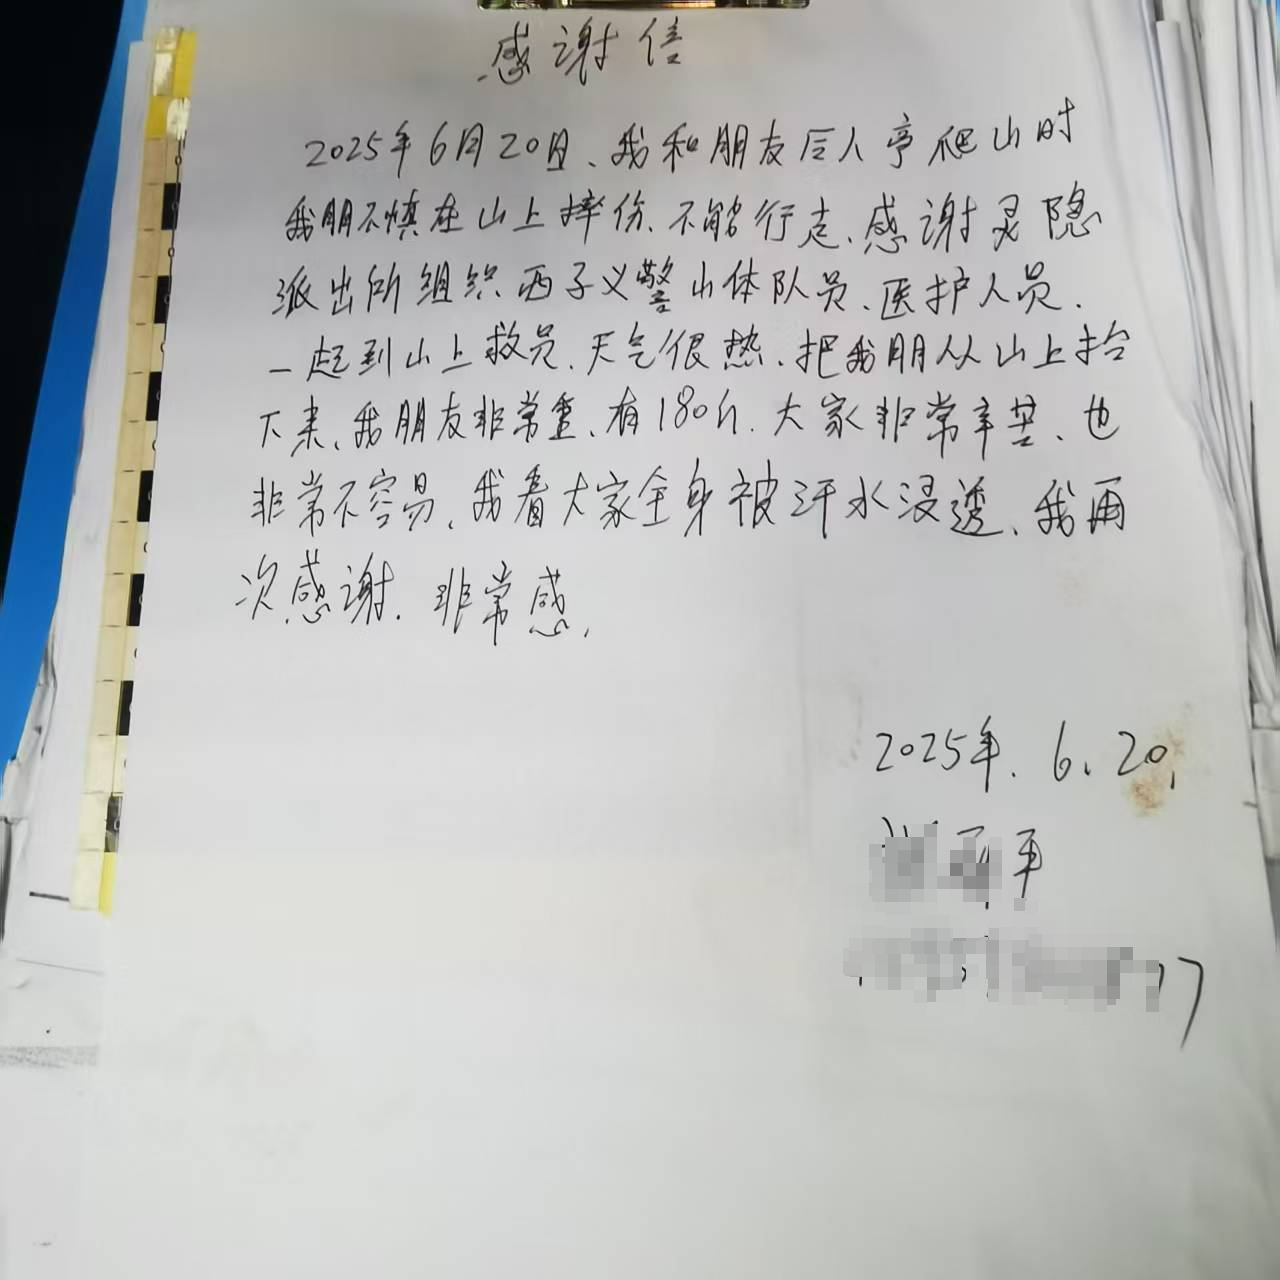 感谢信
2025年6月20日、我和朋友后人亭爬山时
我朋不慎在山上摔伤、不能行走、感谢灵隐
派出所组织西子义警山体队员、医护人员.
一起到山上救员、天气很热、把我朋从山上抬
下来、我朋友非常重、有180斤.大家非常辛苦、也
非常不容易、我看大家全身被汗水浸透、我再
次感谢.非常感.
2025年.6.20.
平
77